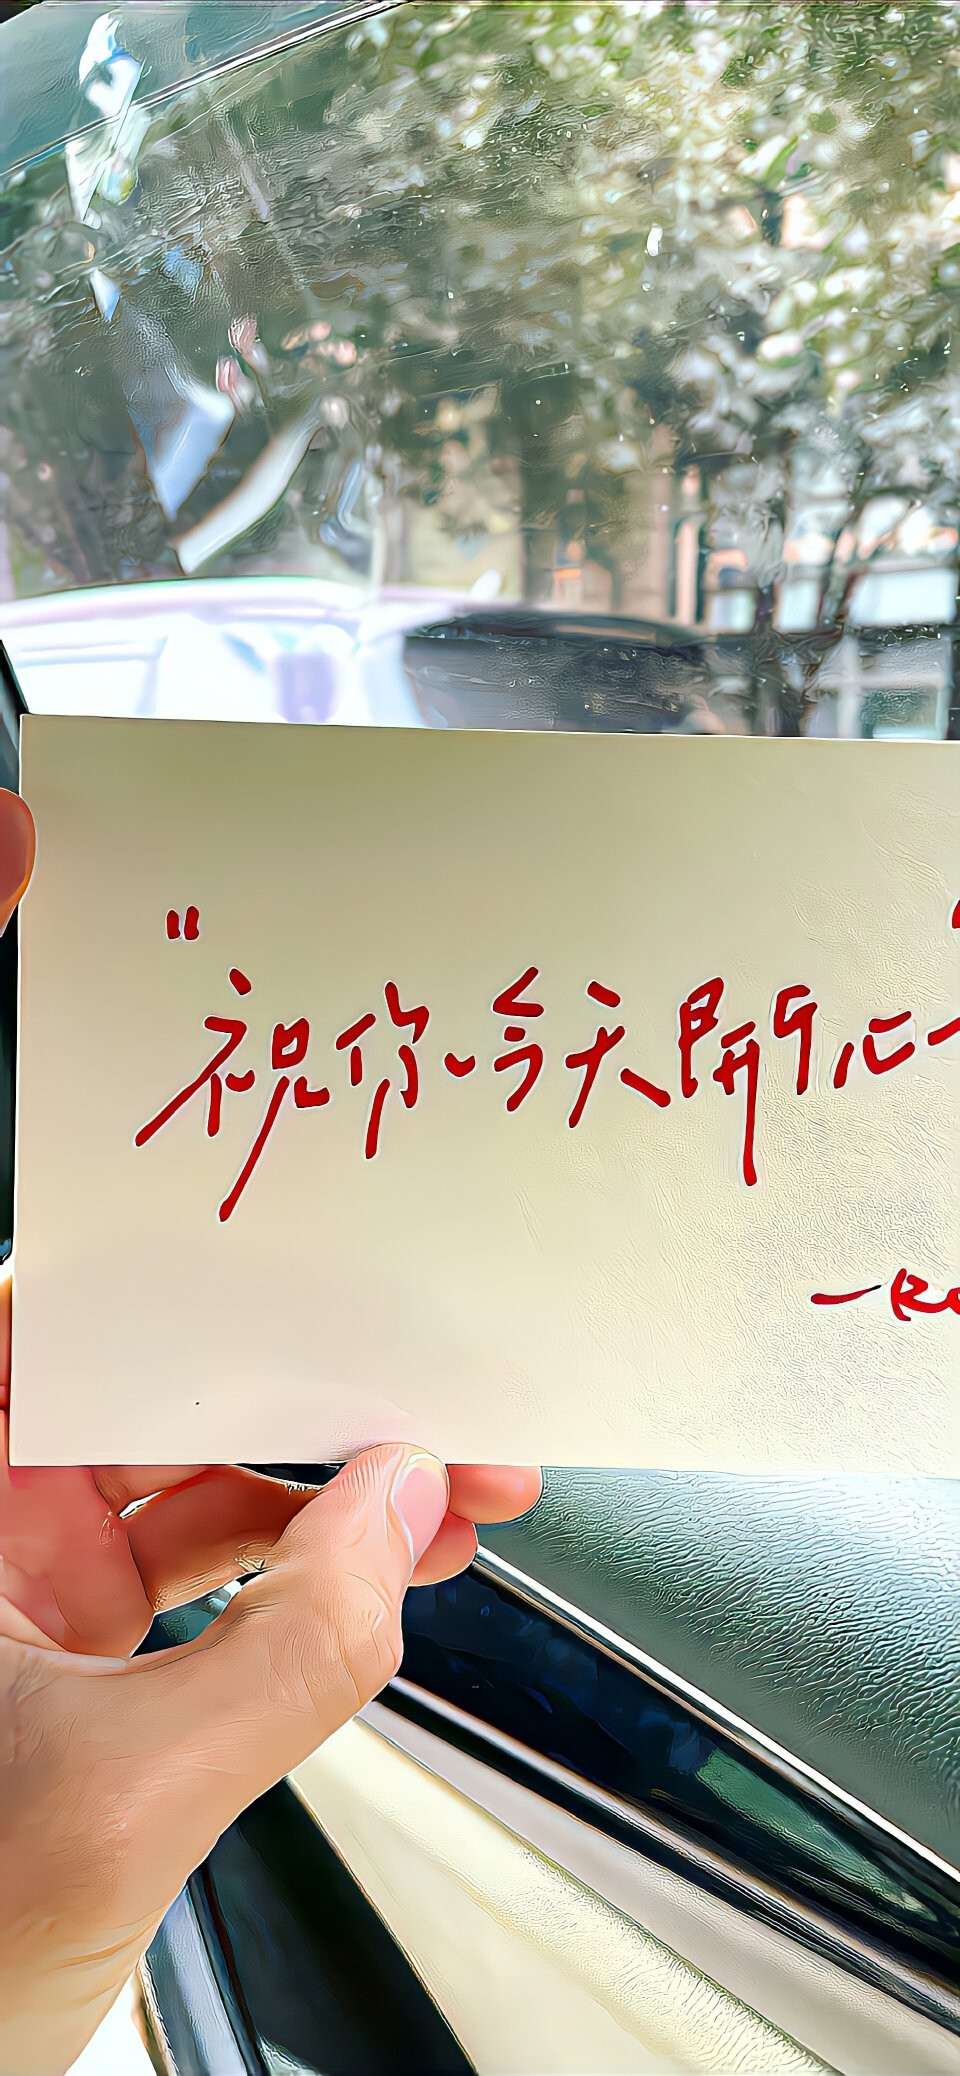 "祝你今天開心